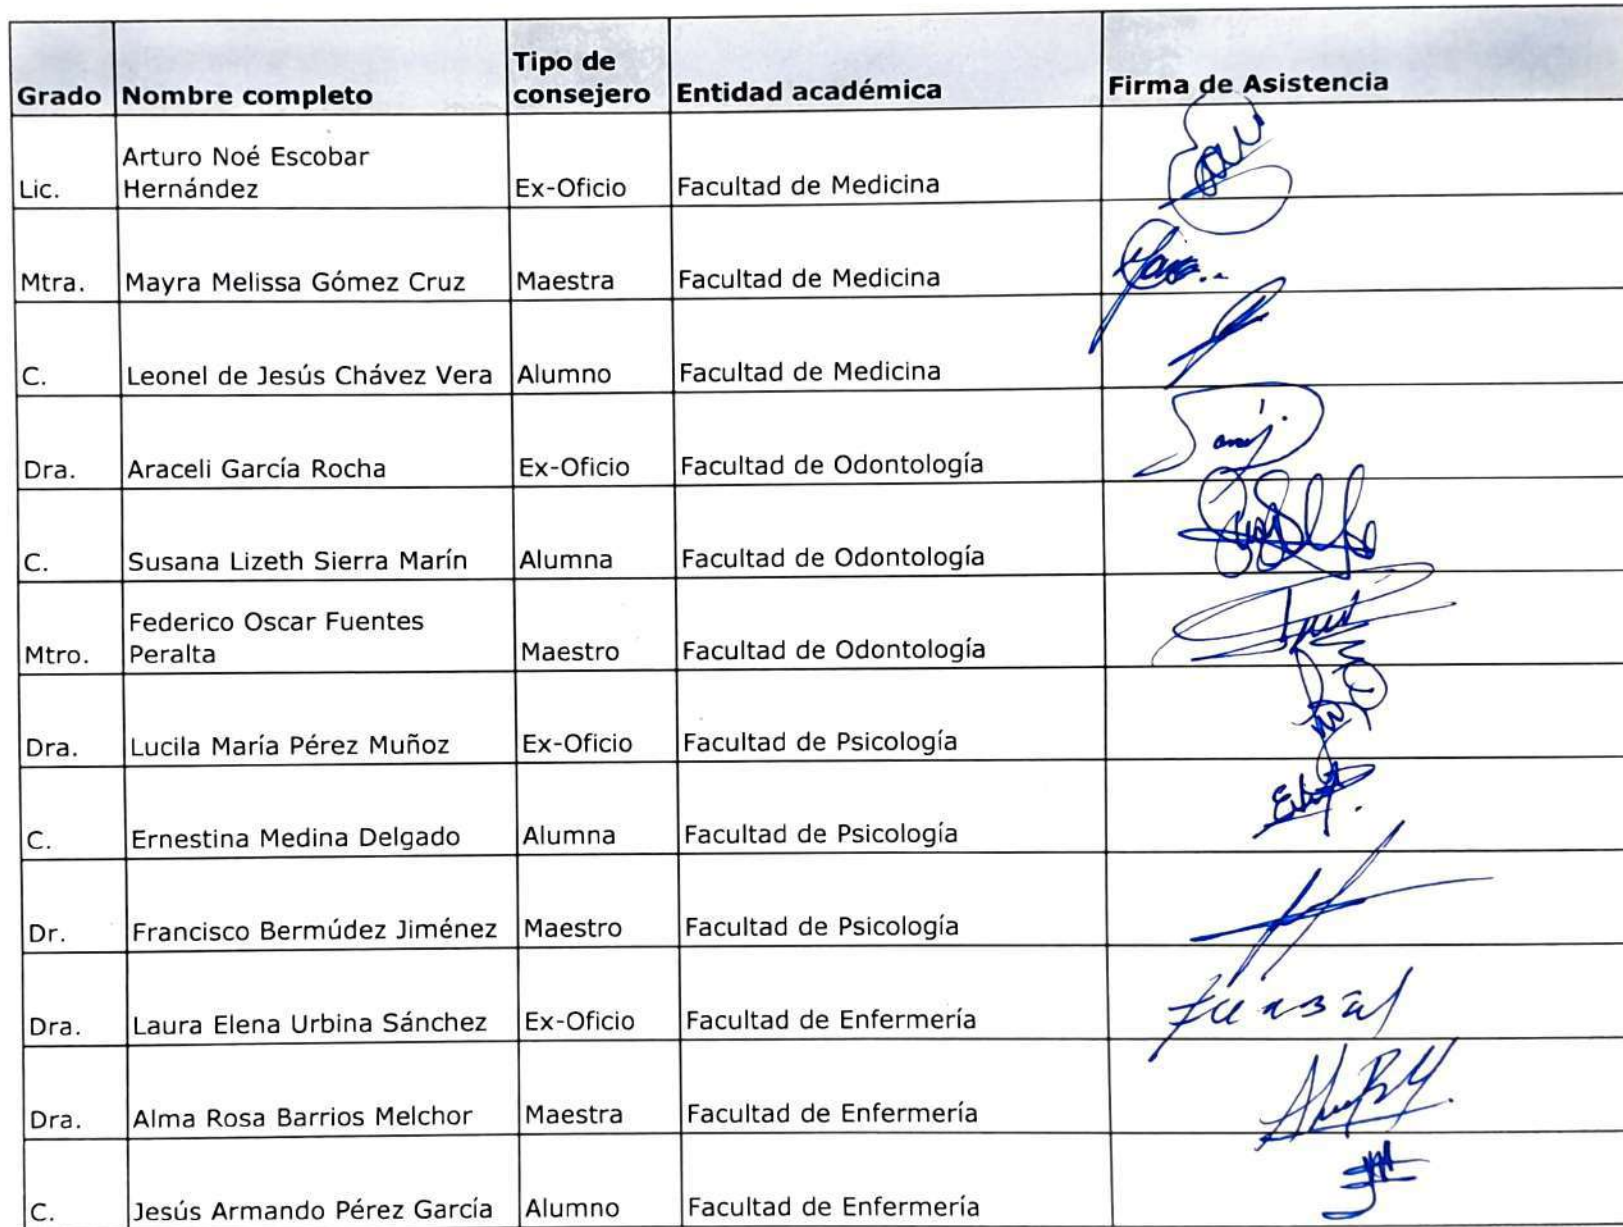 Grado Nombre completo Tipo de consejero Entidad académica Firma de Asistencia
Lic. Arturo Noé Escobar Hernández Ex-Oficio Facultad de Medicina
Mtra. Mayra Melissa Gómez Cruz Maestra Facultad de Medicina
C. Leonel de Jesús Chávez Vera Alumno Facultad de Medicina
Dra. Araceli García Rocha Ex-Oficio Facultad de Odontología
C. Susana Lizeth Sierra Marín Alumna Facultad de Odontología
Mtro. Federico Oscar Fuentes Peralta Maestro Facultad de Odontología
Dra. Lucila María Pérez Muñoz Ex-Oficio Facultad de Psicología
C. Ernestina Medina Delgado Alumna Facultad de Psicología
Dr. Francisco Bermúdez Jiménez Maestro Facultad de Psicología
Dra. Laura Elena Urbina Sánchez Ex-Oficio Facultad de Enfermería
Dra. Alma Rosa Barrios Melchor Maestra Facultad de Enfermería
C. Jesús Armando Pérez García Alumno Facultad de Enfermería